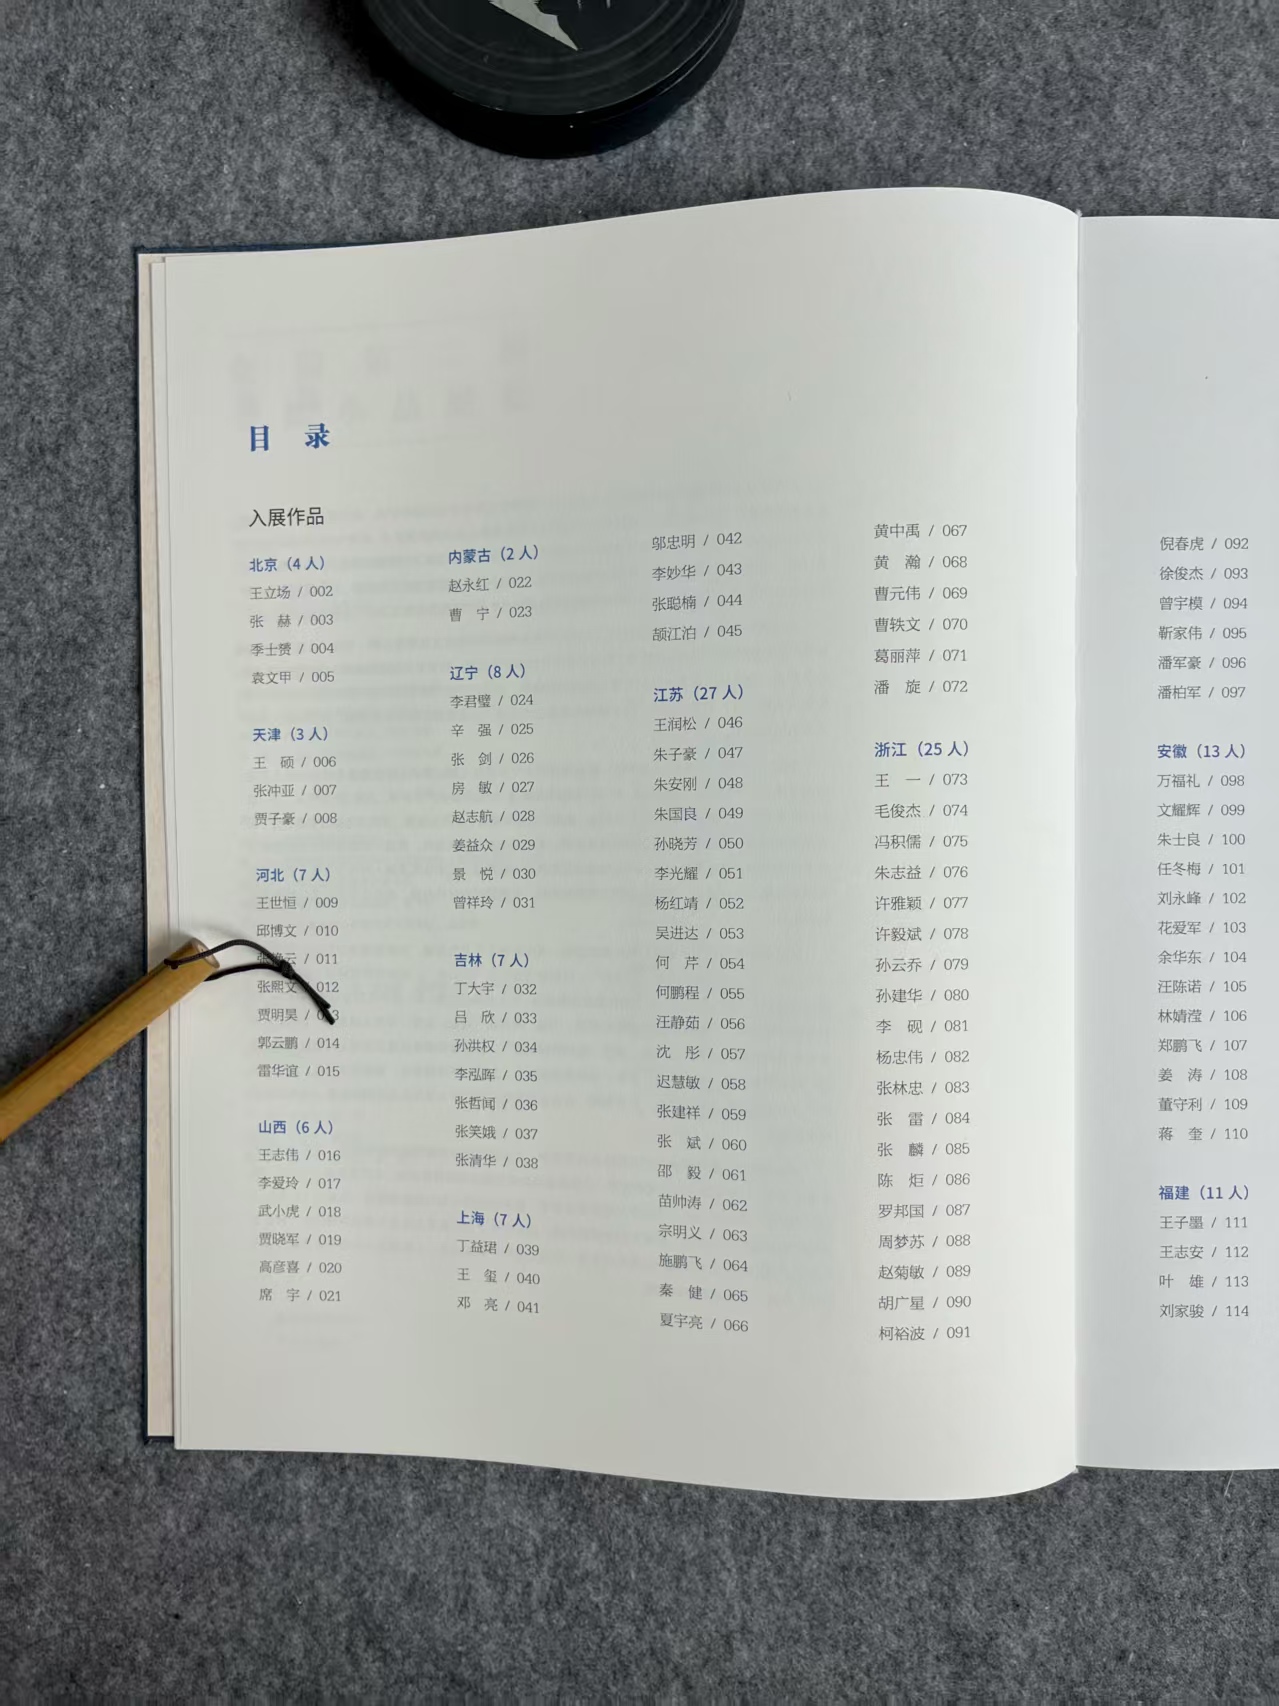 目 录
入展作品
北京（4 人）
王立场 / 002
张 赫 / 003
季士赟 / 004
袁文甲 / 005
天津（3 人）
王 硕 / 006
张冲亚 / 007
贾子豪 / 008
河北（7 人）
王世恒 / 009
邱博文 / 010
云 / 011
张熙文 / 012
贾明昊 /
郭云鹏 / 014
雷华谊 / 015
山西（6 人）
王志伟 / 016
李爱玲 / 017
武小虎 / 018
贾晓军 / 019
高彦喜 / 020
席 宇 / 021
内蒙古（2 人）
赵永红 / 022
曹 宁 / 023
辽宁（8 人）
李君璧 / 024
辛 强 / 025
张 剑 / 026
房 敏 / 027
赵志航 / 028
姜益众 / 029
景 悦 / 030
曾祥玲 / 031
吉林（7 人）
丁大宇 / 032
吕 欣 / 033
孙洪权 / 034
李泓晖 / 035
张哲闻 / 036
张笑娥 / 037
张清华 / 038
上海（7 人）
丁益珺 / 039
王 玺 / 040
邓 亮 / 041
邬忠明 / 042
李妙华 / 043
张聪楠 / 044
颉江泊 / 045
江苏（27 人）
王润松 / 046
朱子豪 / 047
朱安刚 / 048
朱国良 / 049
孙晓芳 / 050
李光耀 / 051
杨红靖 / 052
吴进达 / 053
何 芹 / 054
何鹏程 / 055
汪静茹 / 056
沈 彤 / 057
迟慧敏 / 058
张建祥 / 059
张 斌 / 060
邵 毅 / 061
苗帅涛 / 062
宗明义 / 063
施鹏飞 / 064
秦 健 / 065
夏宇亮 / 066
黄中禹 / 067
黄 瀚 / 068
曹元伟 / 069
曹轶文 / 070
葛丽萍 / 071
潘 旋 / 072
浙江（25 人）
王 一 / 073
毛俊杰 / 074
冯积儒 / 075
朱志益 / 076
许雅颖 / 077
许毅斌 / 078
孙云乔 / 079
孙建华 / 080
李 砚 / 081
杨忠伟 / 082
张林忠 / 083
张 雷 / 084
张 麟 / 085
陈 炬 / 086
罗邦国 / 087
周梦苏 / 088
赵菊敏 / 089
胡广星 / 090
柯裕波 / 091
倪春虎 / 092
徐俊杰 / 093
曾宇模 / 094
靳家伟 / 095
潘军豪 / 096
潘柏军 / 097
安徽（13 人）
万福礼 / 098
文耀辉 / 099
朱士良 / 100
任冬梅 / 101
刘永峰 / 102
花爱军 / 103
余华东 / 104
汪陈诺 / 105
林婧滢 / 106
郑鹏飞 / 107
姜 涛 / 108
董守利 / 109
蒋 奎 / 110
福建（11 人）
王子墨 / 111
王志安 / 112
叶 雄 / 113
刘家骏 / 114